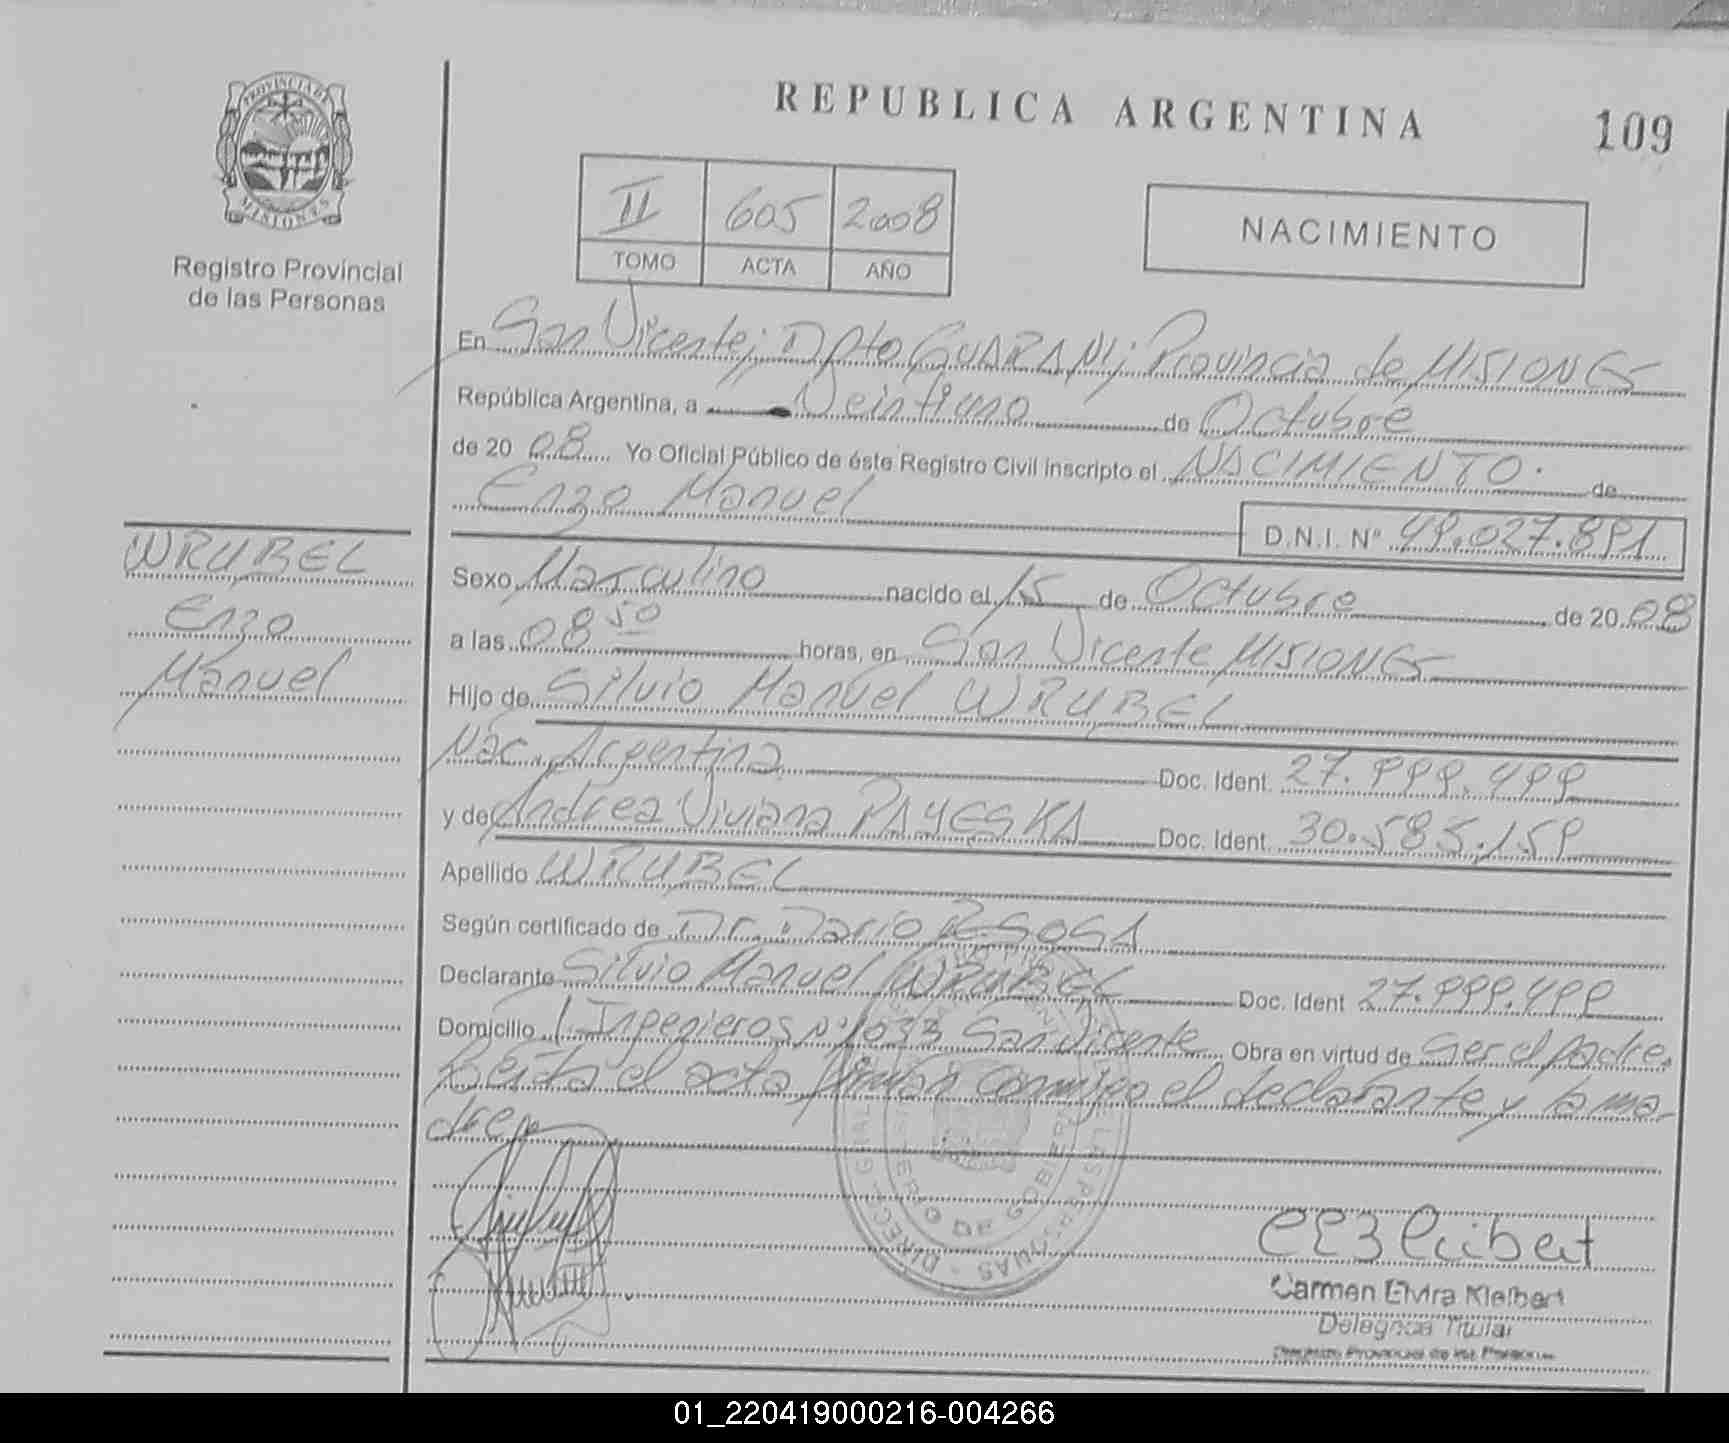 REPUBLICA ARGENTINA
109
PROVINCIA DE
MISIONES
Registro Provincial
de las Personas
II 605 2008
TOMO ACTA AÑO
NACIMIENTO
En San Vicente; Dpto GUARANI; Provincia de MISIONES
República Argentina, a Veintiuno de Octubre
de 20 08 Yo Oficial Público de éste Registro Civil inscripto el NACIMIENTO. de
Enzo Manuel
D.N.I. Nº 49.027.891
WRUBEL
Enzo
Manuel
Sexo Masculino nacido el 15 de Octubre de 20 08
a las 08 50 horas, en San Vicente MISIONES
Hijo de Silvio Manuel WRUBEL
Nac. Argentina Doc. Ident. 27.999.499
y de Andrea Viviana PAYESKA Doc. Ident. 30.585.159
Apellido WRUBEL
Según certificado de Dr. Dario R. SOSA
Declarante Silvio Manuel WRUBEL Doc. Ident 27.999.499
Domicilio Ingenieros Nº 1033 San Vicente Obra en virtud de Ser el padre.
Leída el acta firman conmigo el declarante y la ma-
dre
Carmen Elvira Kleibert
Delegada Titular
Registro Provincial de las Personas
01_220419000216-004266